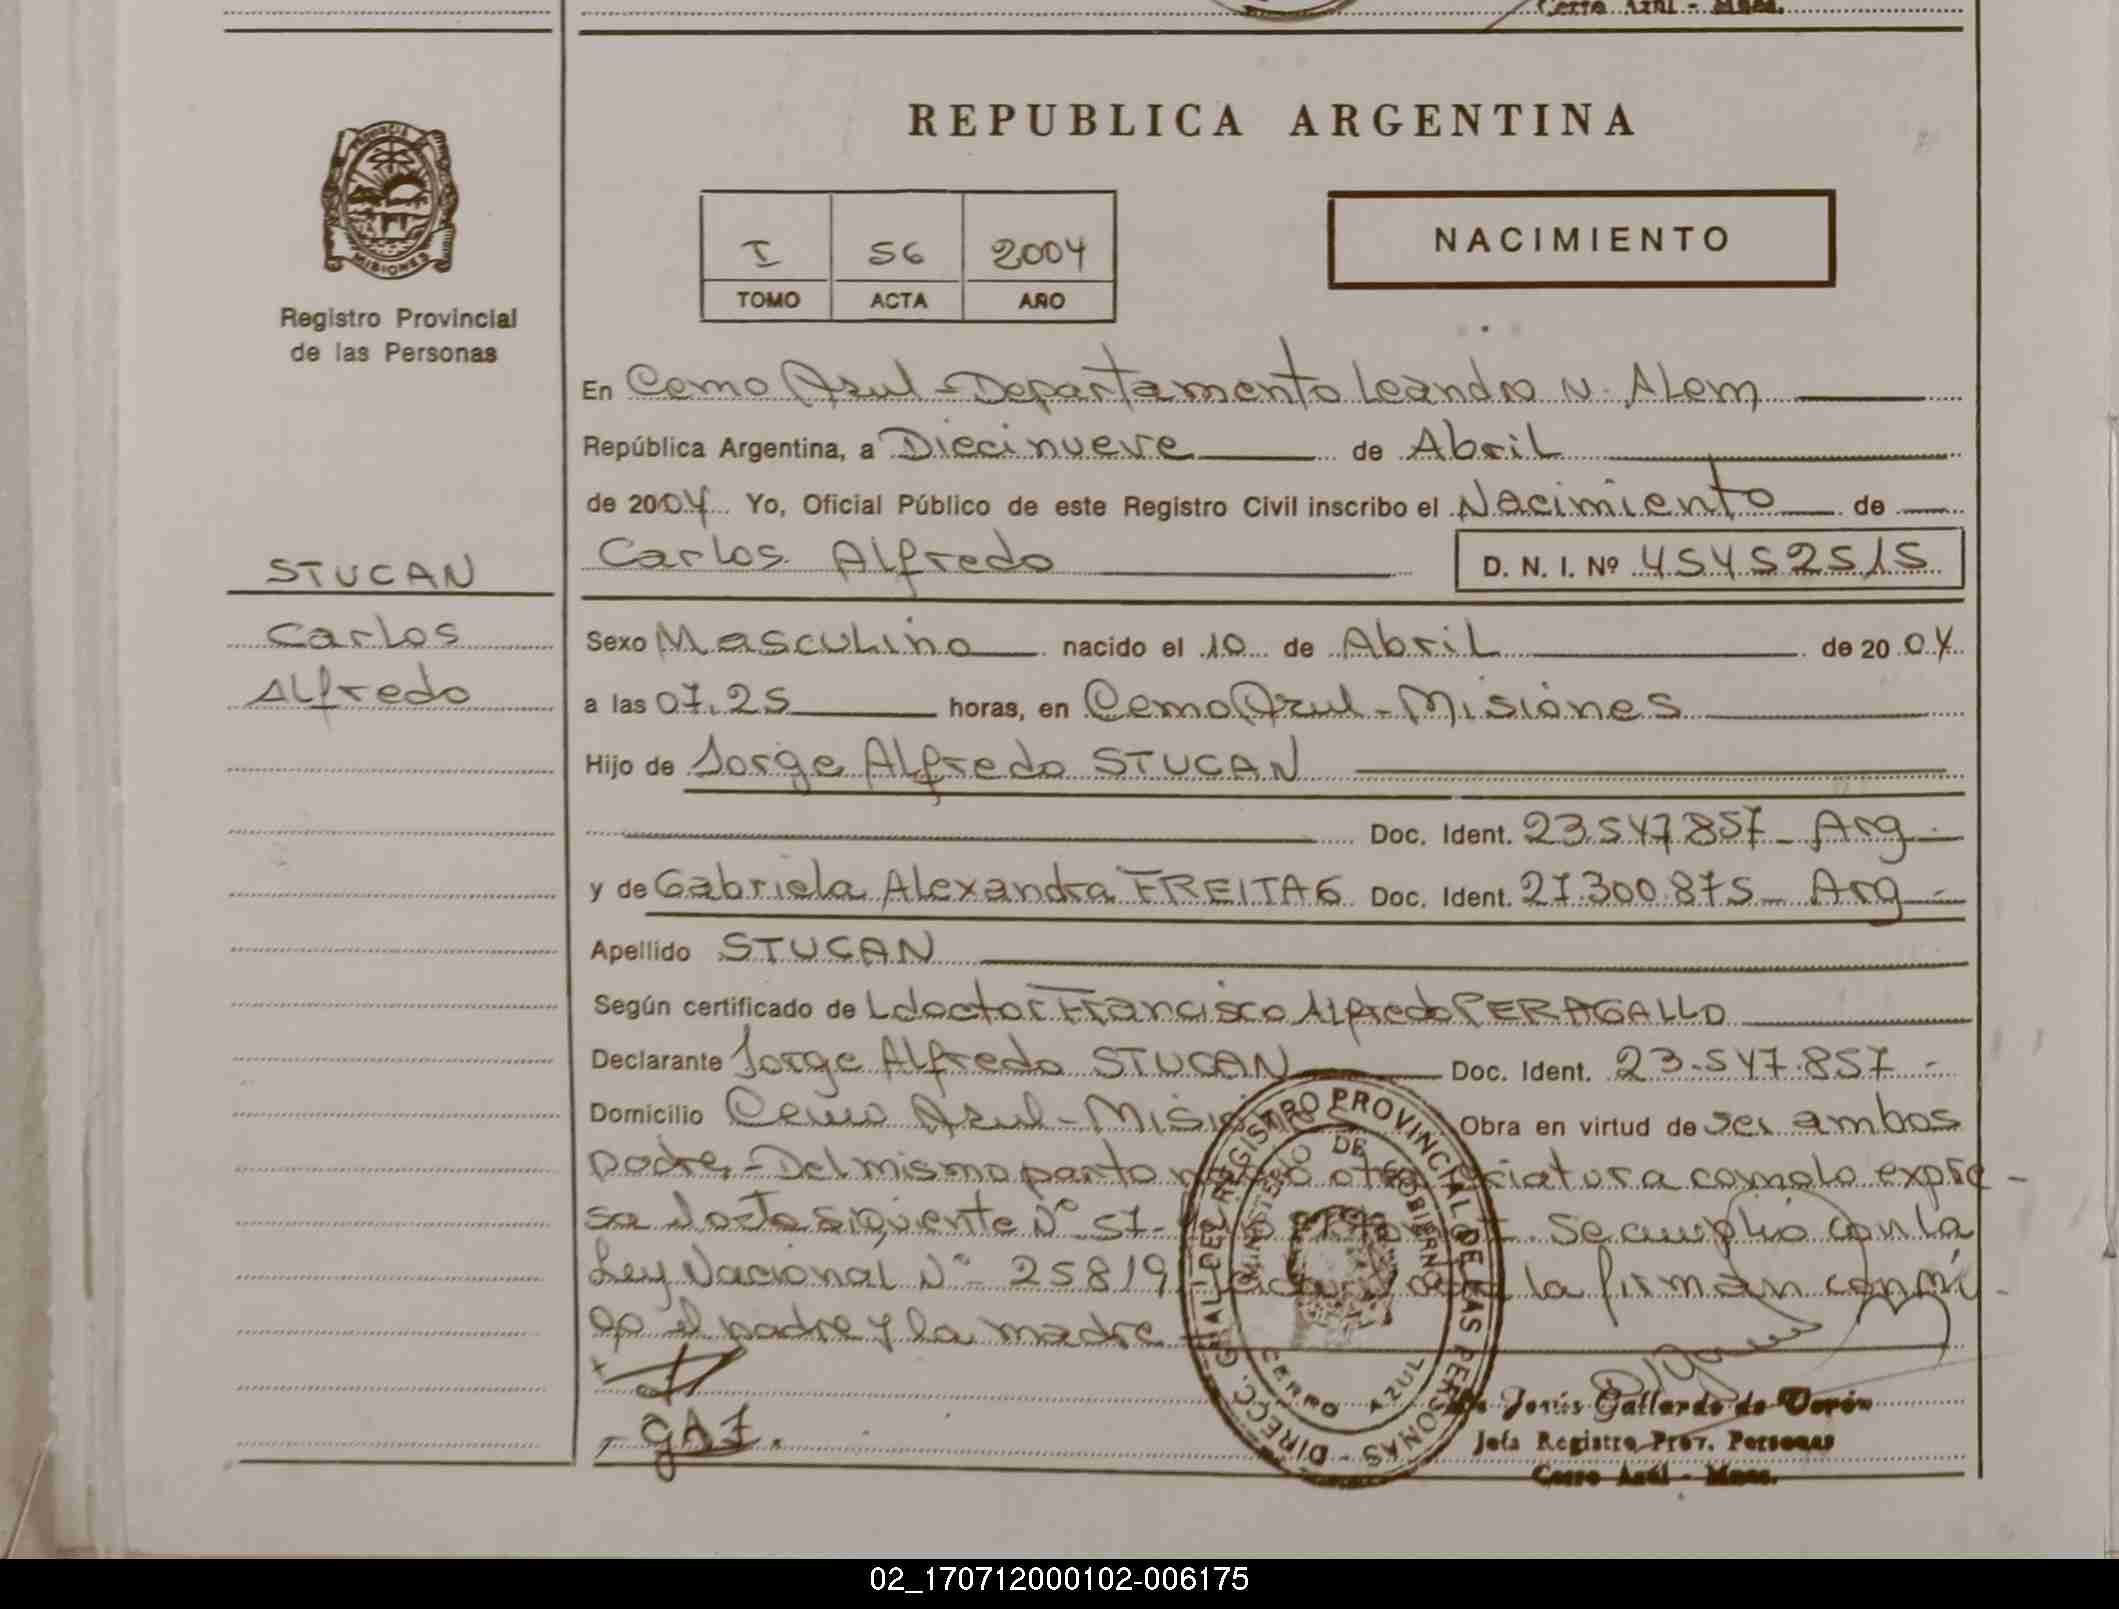 Cerro Azul - Mnes.
PROVINCIA
MISIONES
Registro Provincial
de las Personas
STUCAN
Carlos
Alfredo
REPUBLICA ARGENTINA
I 56 2004
TOMO ACTA AÑO
NACIMIENTO
En Cerro Azul - Departamento Leandro N. Alem
República Argentina, a Diecinueve de Abril
de 2004 Yo, Oficial Público de este Registro Civil inscribo el Nacimiento de
Carlos Alfredo D. N. I. Nº 45452515
Sexo Masculino nacido el 10 de Abril de 20 04
a las 07.25 horas, en Cerro Azul - Misiones
Hijo de Jorge Alfredo STUCAN
Doc. Ident. 23.547.857 - Arg -
y de Gabriela Alexandra FREITAG Doc. Ident. 27.300.875 - Arg -
Apellido STUCAN
Según certificado de L doctor Francisco Alfredo PERAGALLO
Declarante Jorge Alfredo STUCAN Doc. Ident. 23.547.857 -
Domicilio Cerro Azul - Misiones Obra en virtud de ser ambos
padres - Del mismo parto nació otra criatura como lo expre -
sa el acta siguiente Nº 57 - Se cumplió con la
Ley Nacional Nº 25819 la firman conmi -
go el padre y la madre
GAF.
DIRECC. GRAL. DEL REGISTRO PROVINCIAL DE LAS PERSONAS -
MINISTERIO DE GOBIERNO
CERRO AZUL
Jesús Gallardo de Verón
Jefa Registro Prov. Personas
Cerro Azul - Mnes.
02_170712000102-006175